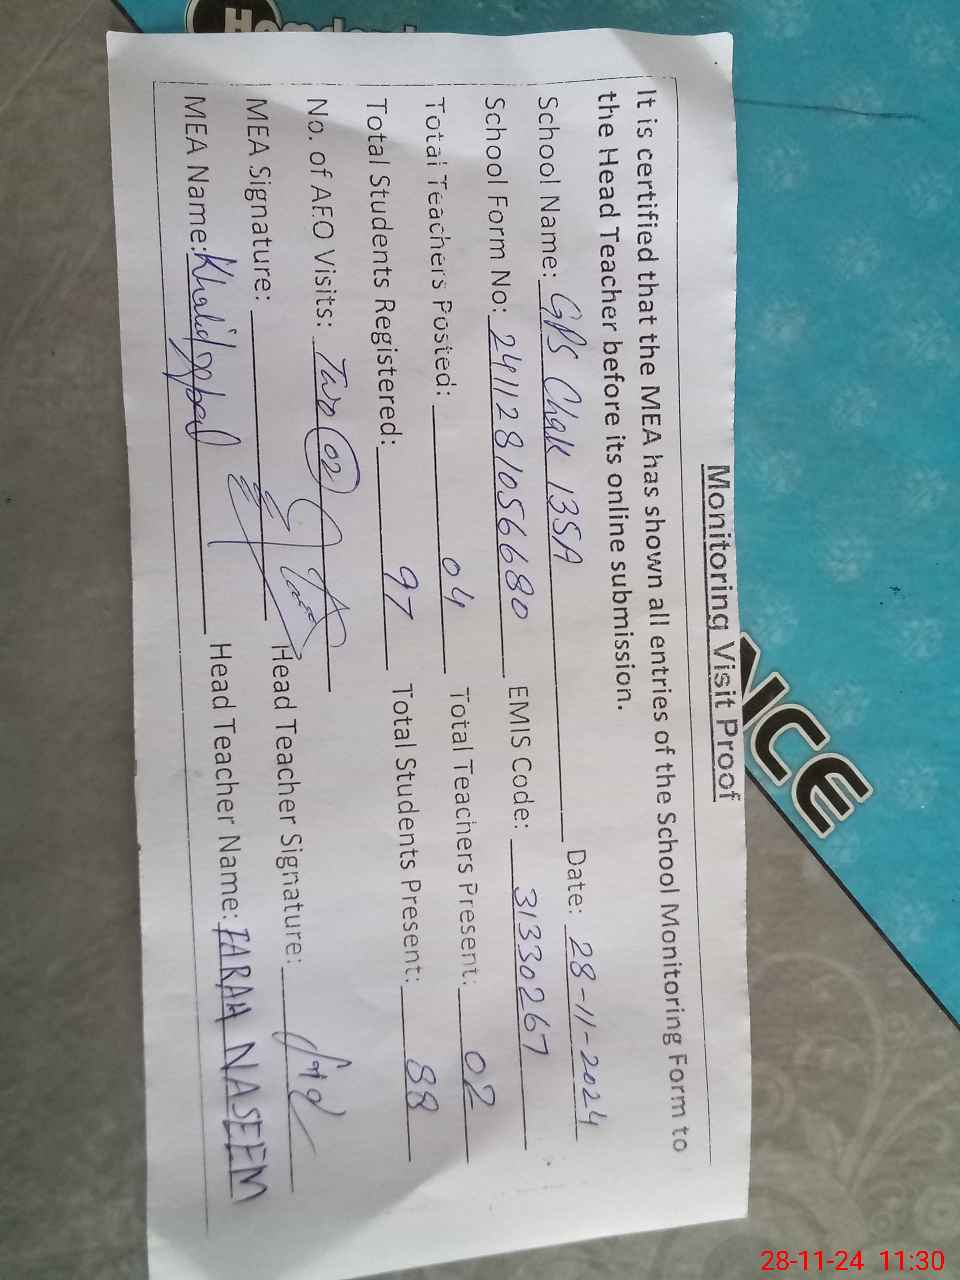 Monitoring Visit Proof
It is certified that the MEA has shown all entries of the School Monitoring Form to
the Head Teacher before its online submission.
School Name: GPS Chak 135A Date: 28-11-2024
School Form No: 2411281056680 EMIS Code: 31330267
Total Teachers Posted: 04 Total Teachers Present: 02
Total Students Registered: 97 Total Students Present: 88
No. of AEO Visits: Two (02)
MEA Signature: Head Teacher Signature:
MEA Name: Khalid Iqbal Head Teacher Name: FARAH NASEEM
NCE
28-11-24 11:30